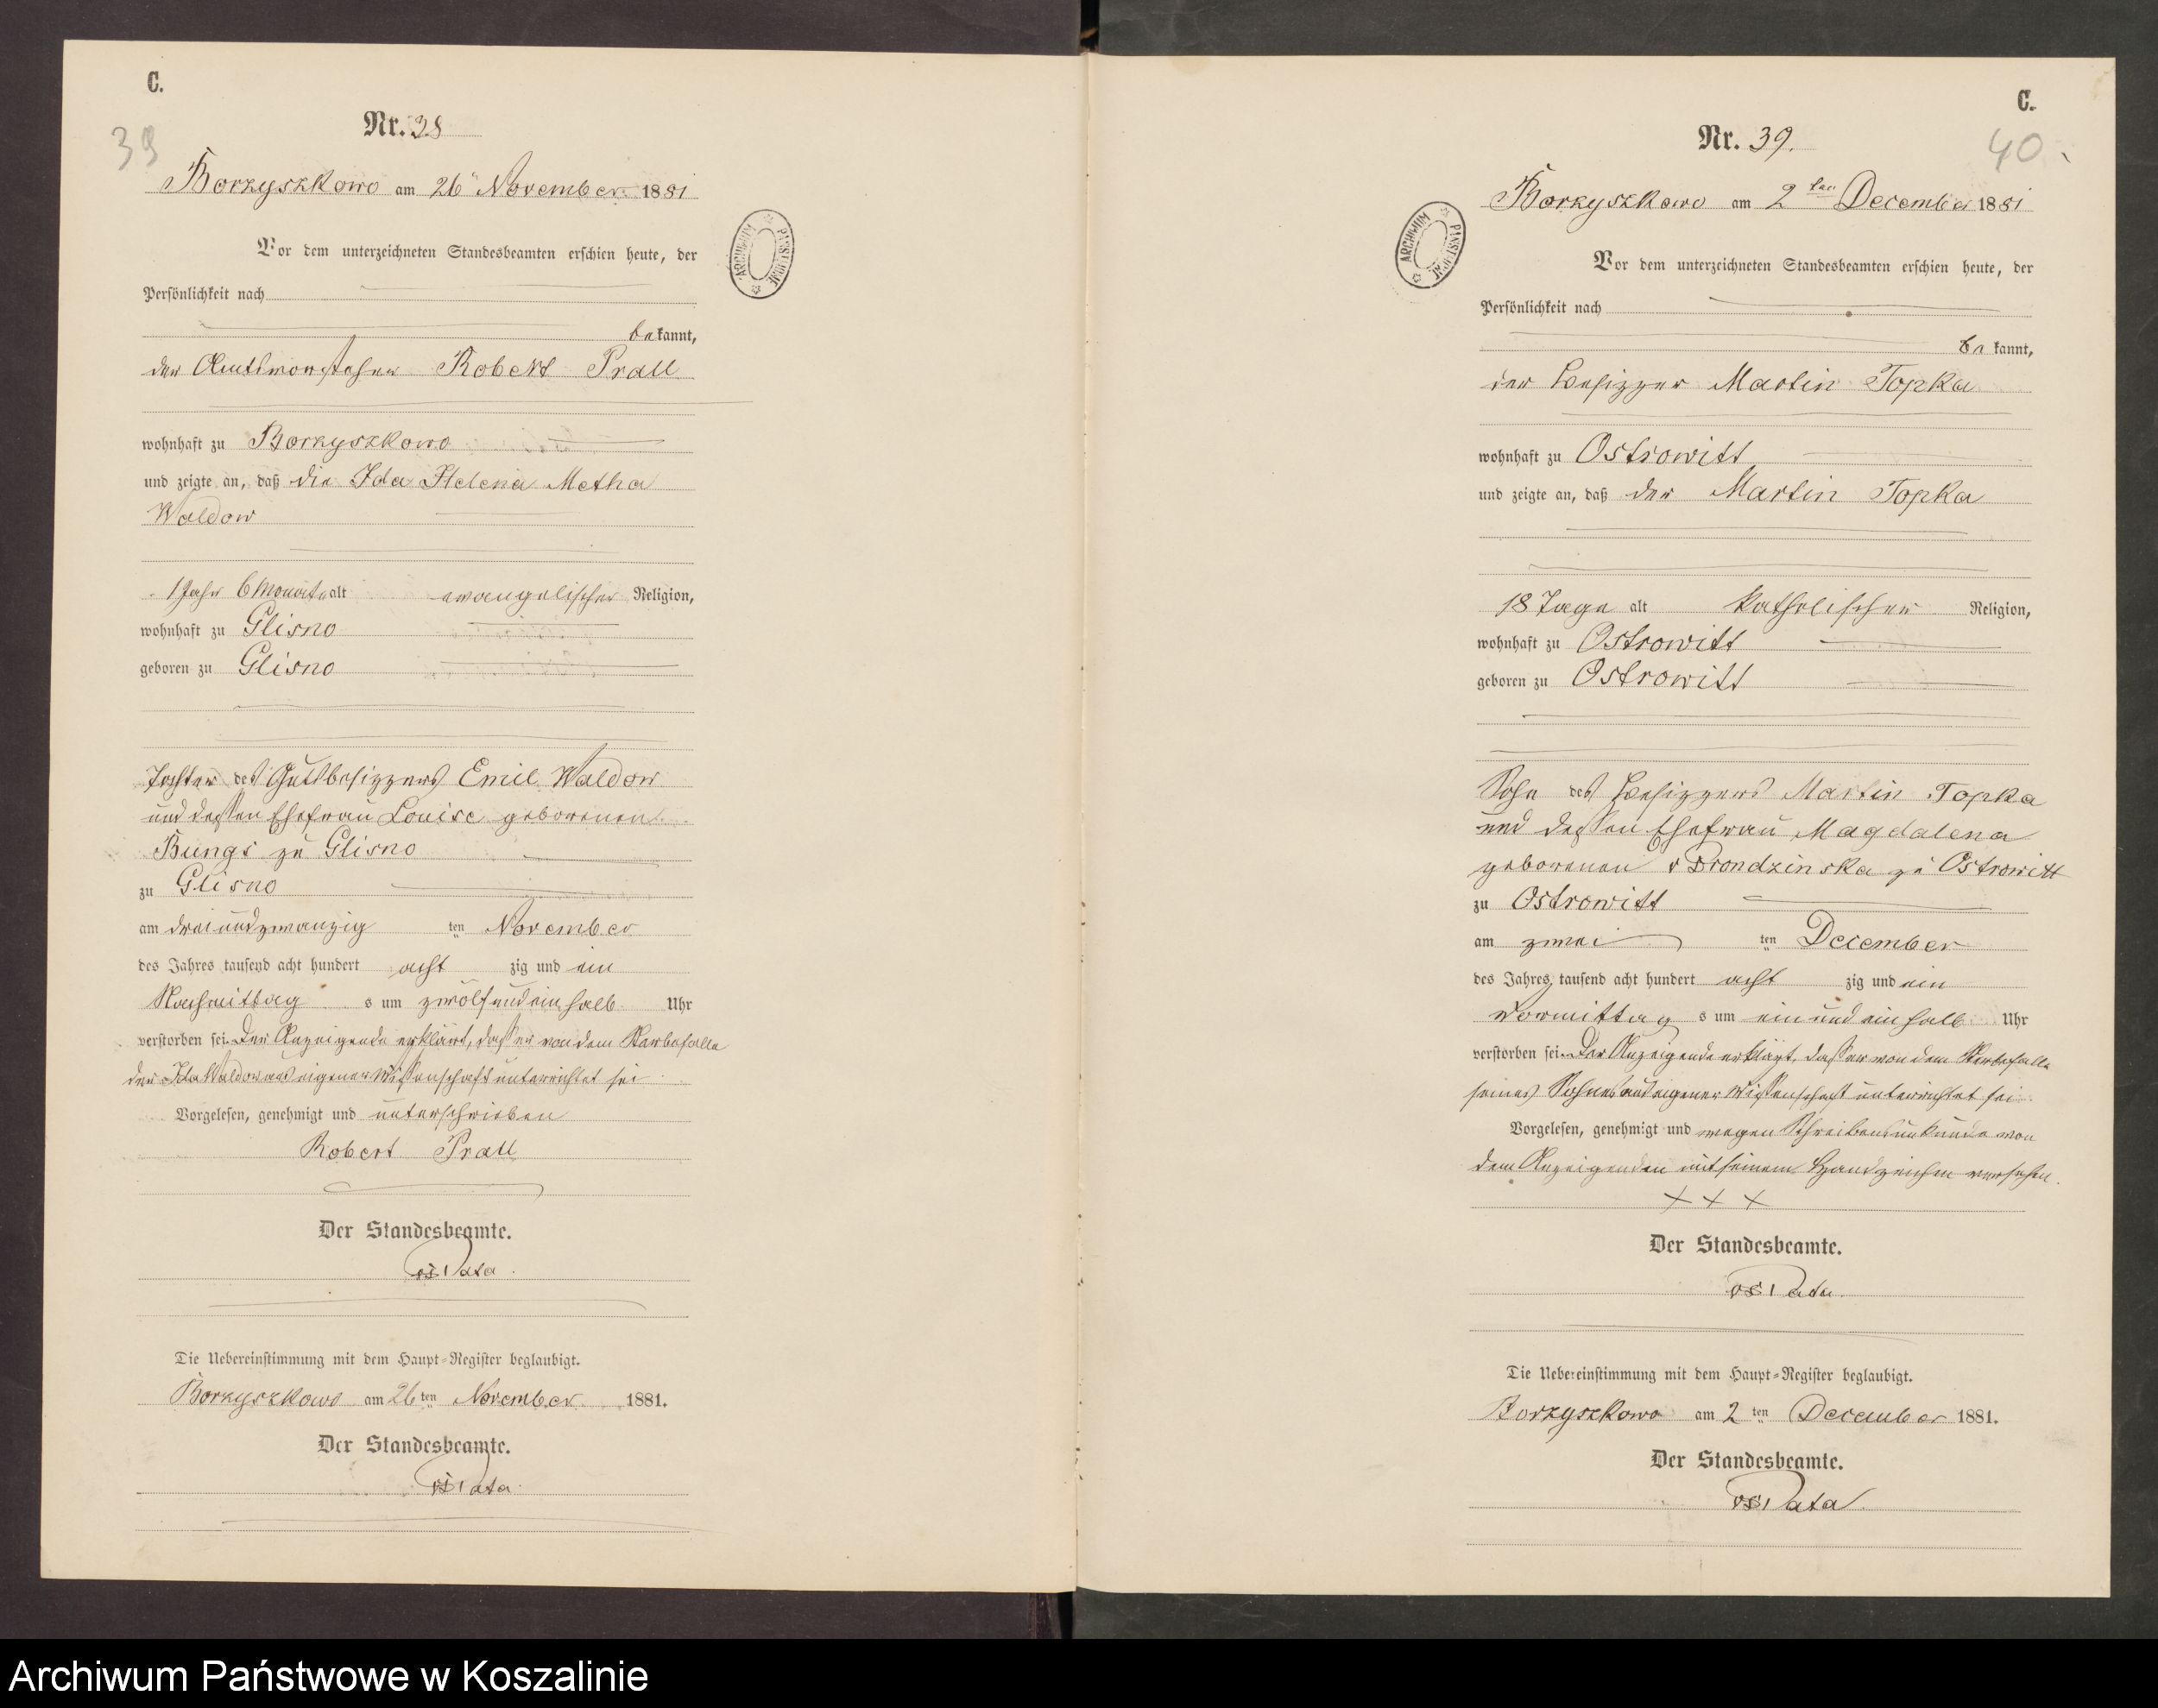 C.
39
Nr. 38
Borzyszkowo am 26ten November 1881
Vor dem unterzeichneten Standesbeamten erschien heute, der
Persönlichkeit nach
bekannt,
der Amtsvorsteher Robert Prall
wohnhaft zu Borzyszkowo
und zeigte an, daß die Ida Helena Metha
Waldow
1 Jahr 6 Monate alt evangelischer Religion,
wohnhaft zu Glisno
geboren zu Glisno
Tochter des Gutsbesitzers Emil Waldow
und dessen Ehefrau Louise geborenen
Bungs zu Glisno
zu Glisno
am dreiundzwanzig ten November
des Jahres tausend acht hundert acht zig und ein
Nachmittag s um zwölf und ein halb Uhr
verstorben sei. Der Anzeigende erklärt, daß er von dem Sterbefalle
der Ida Waldow aus eigener Wissenschaft unterrichtet sei
Vorgelesen, genehmigt und unterschrieben
Robert Prall
Der Standesbeamte.
Die Uebereinstimmung mit dem Haupt-Register beglaubigt.
Borzyszkowo am 26 ten November 1881.
Der Standesbeamte.
ARCHIWUM PAŃSTWOWE
C.
40
Nr. 39.
Borzyszkowo am 2ten December 1881
Vor dem unterzeichneten Standesbeamten erschien heute, der
Persönlichkeit nach
bekannt,
der Besitzer Martin Topka
wohnhaft zu Ostrowitt
und zeigte an, daß der Martin Topka
18 Tage alt katholischer Religion,
wohnhaft zu Ostrowitt
geboren zu Ostrowitt
Sohn des Besitzers Martin Topka
und dessen Ehefrau Magdalena
geborenen v Prondzinska zu Ostrowitt
zu Ostrowitt
am zwei ten December
des Jahres tausend acht hundert acht zig und ein
Vormittag s um ein und ein halb Uhr
verstorben sei. Der Anzeigende erklärt, daß er von dem Sterbefalle
seines Sohnes aus eigener Wissenschaft unterrichtet sei
Vorgelesen, genehmigt und wegen Schreibensunkunde von
dem Anzeigenden mit seinem Handzeichen versehen.
+ + +
Der Standesbeamte.
Die Uebereinstimmung mit dem Haupt-Register beglaubigt.
Borzyszkowo am 2 ten December 1881.
Der Standesbeamte.
ARCHIWUM PAŃSTWOWE
Archiwum Państwowe w Koszalinie